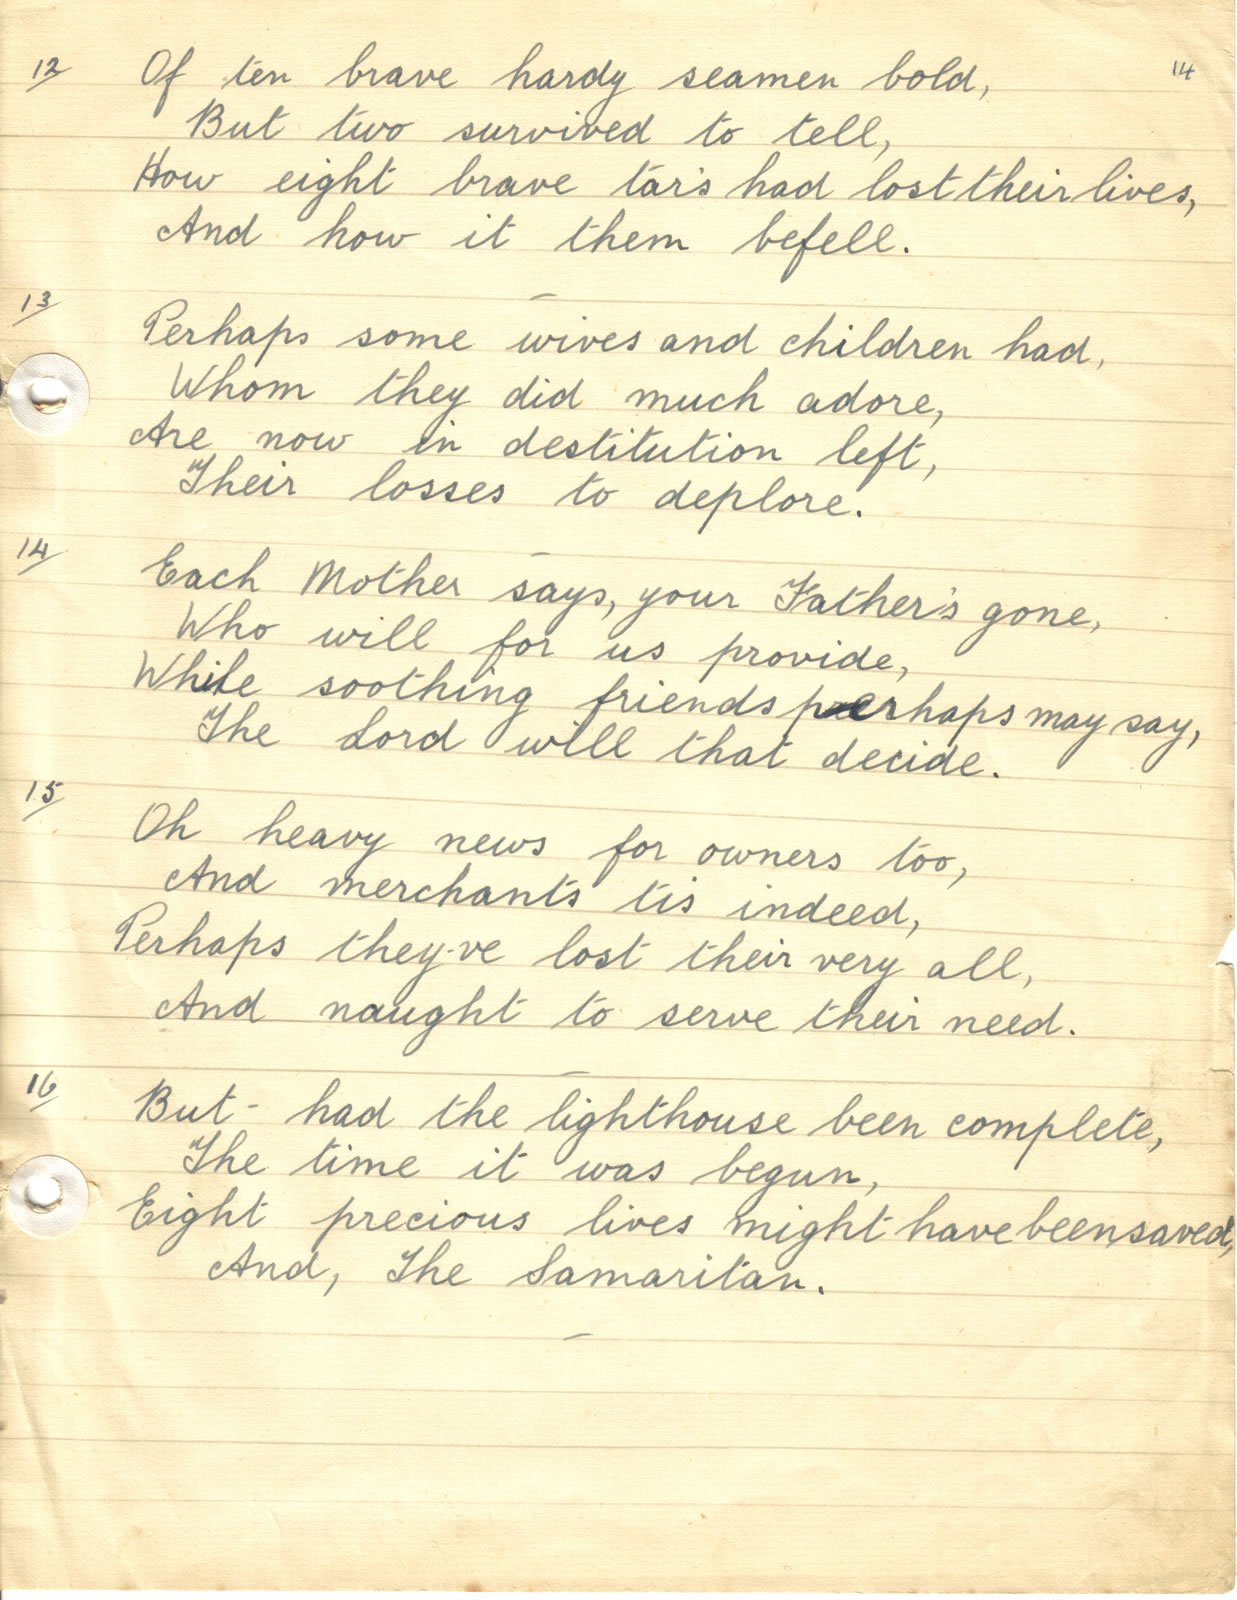 14
12 Of ten brave hardy seamen bold,
But two survived to tell,
How eight brave tar's had lost their lives,
And how it them befell.
13 Perhaps some wives and children had,
Whom they did much adore,
Are now in destitution left,
Their losses to deplore.
14 Each Mother says, your Father's gone,
Who will for us provide,
While soothing friends perhaps may say,
The Lord will that decide.
15 Oh heavy news for owners too,
And merchants tis indeed,
Perhaps they-ve lost their very all,
And naught to serve their need.
16 But - had the lighthouse been complete,
The time it was begun,
Eight precious lives might have been saved,
And, The Samaritan.